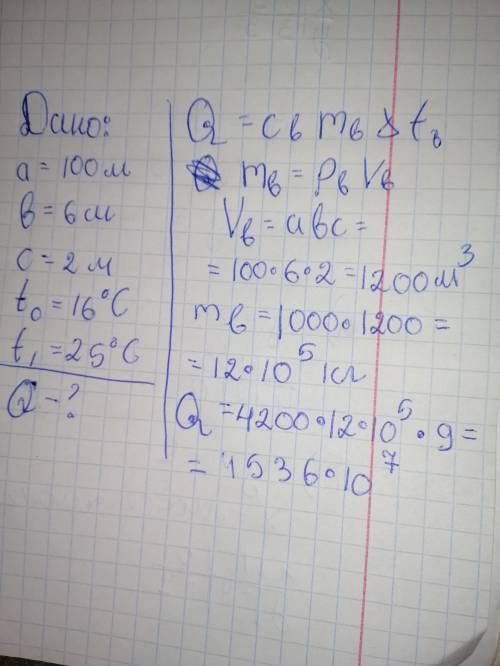 Дано:
a = 100 м
в = 6 м
c = 2 м
t₀ = 16°C
t₁ = 25°C
Q - ?
Q = cв mв Δ tв
mв = ρв Vв
Vв = aвc =
= 100·6·2 = 1200 м³
mв = 1000·1200 =
= 12·10⁵ кг
Q = 4200·12·10⁵·9 =
= 1536·10⁷